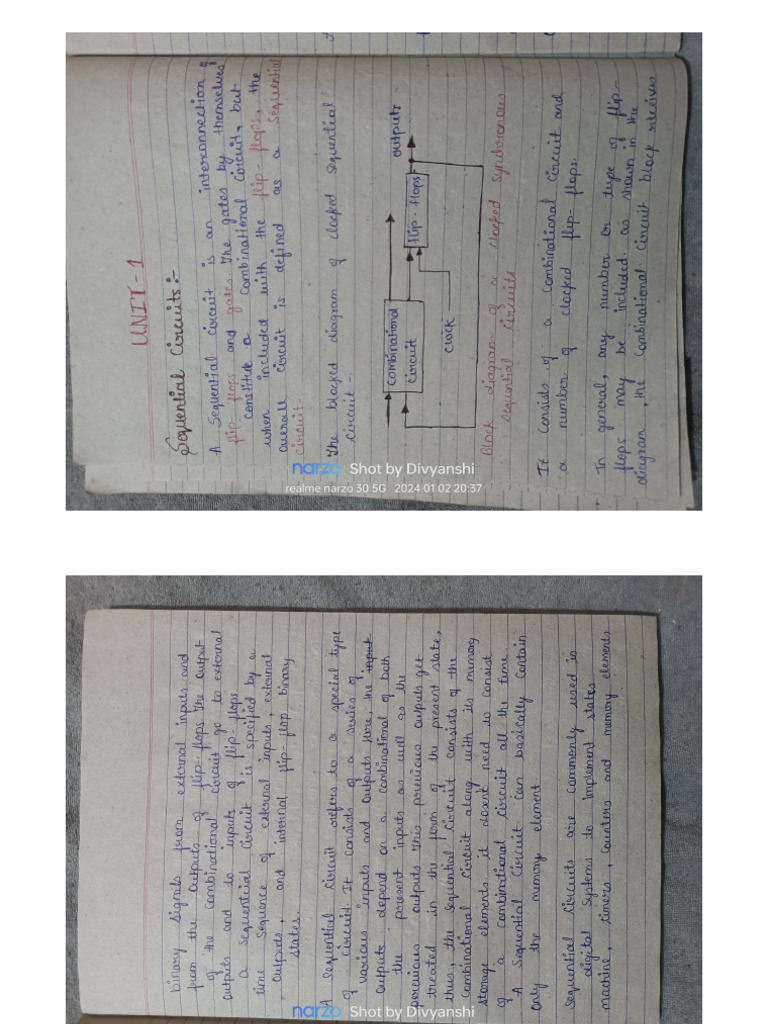 UNIT-1
Sequential Circuits:-
A Sequential circuit is an interconnection of
flip-flops and gates. The gates by themselves
constitute a combinational circuit, but
when included with the flip-flops, the
overall circuit is defined as a Sequential
circuit.
The blocked diagram of clocked sequential
circuit-
combinational
circuit
flip-flops
outputs
clock
Block diagram of a clocked synchronous
sequential circuits
It Consists of a Combinational Circuit and
a number of clocked flip-flops.
In general, any number or type of flip-
flops may be included. as shown in the
diagram, the Combinational Circuit block receives
narzo Shot by Divyanshi
realme narzo 30 5G 2024 01 02 20:37
binary signals from external inputs and
from the outputs of flip-flops The output
of the combinational circuit go to external
outputs and to inputs of flip-flops.
a sequential circuit is specified by a
time sequence of external inputs, external
outputs, and internal flip-flop binary
states.
A sequential circuit refers to a special type
of circuit. It consists of a series of
various inputs and outputs Here, the input
outputs depend on a combinational of both
the present inputs as well as the
previous outputs This previous outputs get
treated in the form of the present state,
thus, the Sequential Circuit consists of the
Combinational Circuit along with its memory
storage elements. it doesnt need to consist
of a combinational circuit all the time.
A Sequential Circuit can basically contain
only the memory element
Sequential circuits are commonly used in
digital Systems to implement states
machine, timers, counters and memory elements
narzo Shot by Divyanshi